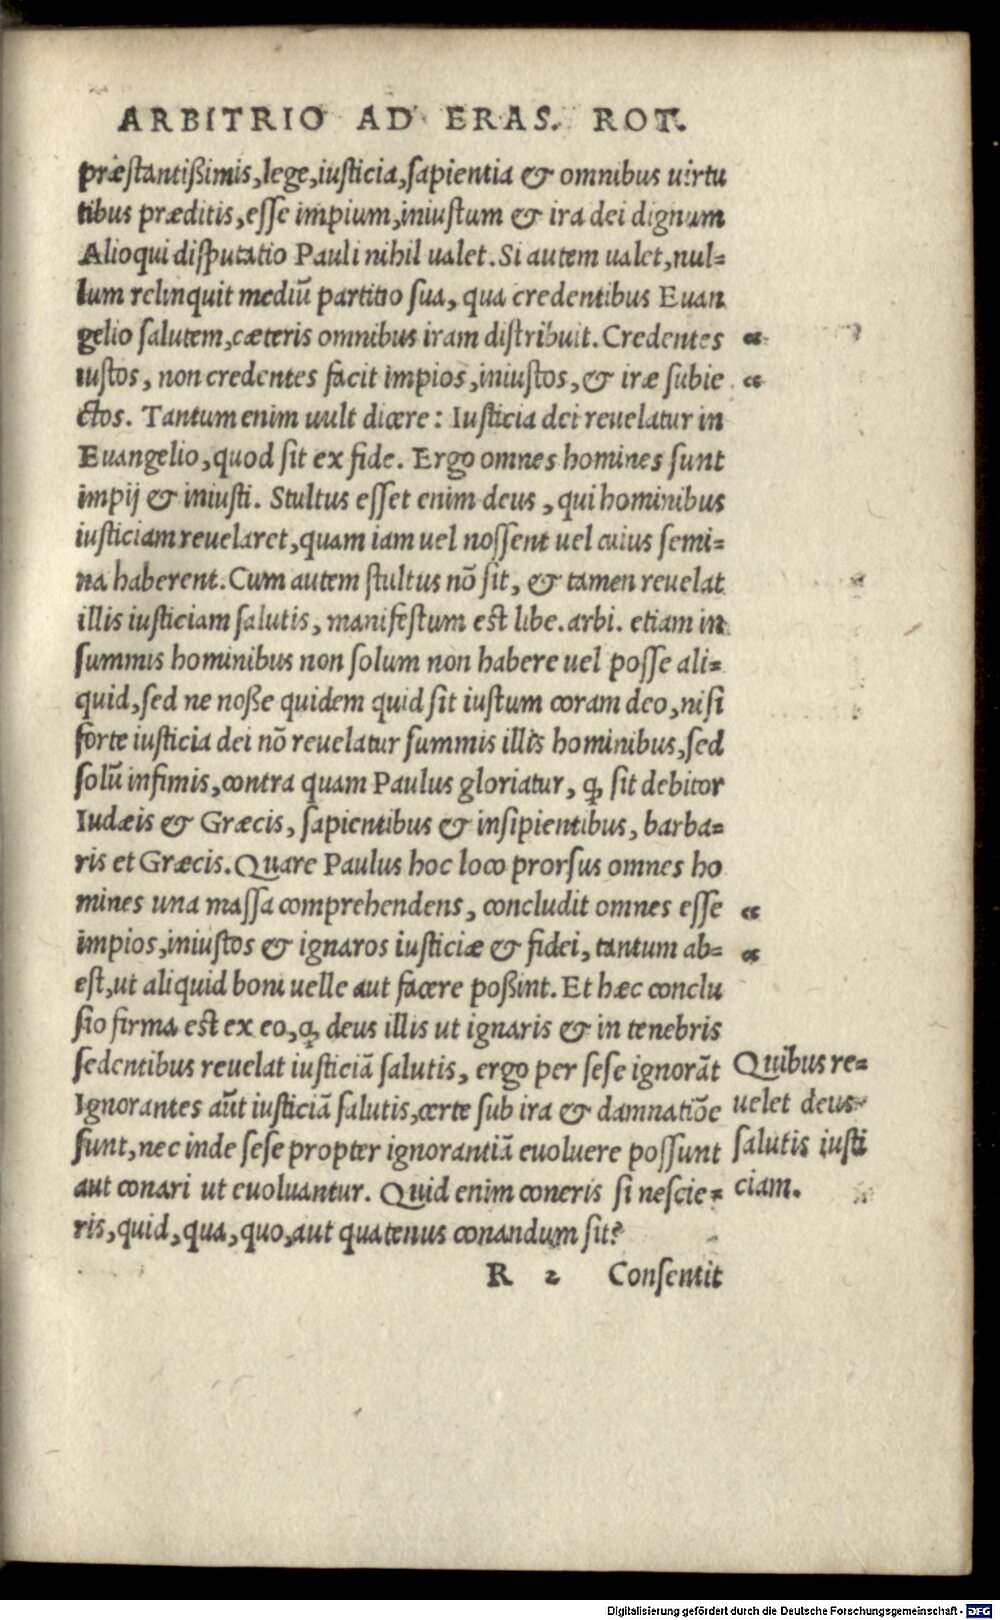 ARBITRIO AD ERAS. ROT.
præstantißimis, lege, iusticia, sapientia & omnibus uirtu
tibus præditis, esse impium, iniustum & ira dei dignum
Alioqui disputatio Pauli nihil ualet. Si autem ualet, nul=
lum relinquit mediū partitio sua, qua credentibus Euan
gelio salutem, cæteris omnibus iram distribuit. Credentes “
iustos, non credentes facit impios, iniustos, & iræ subie “
ctos. Tantum enim uult dicere: Iusticia dei reuelatur in
Euangelio, quod sit ex fide. Ergo omnes homines sunt
impij & iniusti. Stultus esset enim deus, qui hominibus
iusticiam reuelaret, quam iam uel nossent uel cuius semi=
na haberent. Cum autem stultus nō sit, & tamen reuelat
illis iusticiam salutis, manifestum est libe. arbi. etiam in
summis hominibus non solum non habere uel posse ali=
quid, sed ne noße quidem quid sit iustum coram deo, nisi
forte iusticia dei nō reuelatur summis illis hominibus, sed
solū infimis, contra quam Paulus gloriatur, ꝙ sit debitor
Iudæis & Græcis, sapientibus & insipientibus, barba=
ris et Græcis. Quare Paulus hoc loco prorsus omnes ho
mines una massa comprehendens, concludit omnes esse “
impios, iniustos & ignaros iusticiæ & fidei, tantum ab= “
est, ut aliquid boni uelle aut facere poßint. Et hæc conclu
sio firma est ex eo, ꝙ deus illis ut ignaris & in tenebris
sedentibus reuelat iusticiā salutis, ergo per sese ignorāt
Ignorantes aūt iusticiā salutis, certe sub ira & damnatiōe
sunt, nec inde sese propter ignorantiā euoluere possunt
aut conari ut euoluantur. Quid enim coneris si nescie=
ris, quid, qua, quo, aut quatenus conandum sit?
Quibus re=
uelet deus
salutis iusti
ciam.
R 2 Consentit
Digitalisierung gefördert durch die Deutsche Forschungsgemeinschaft - DFG